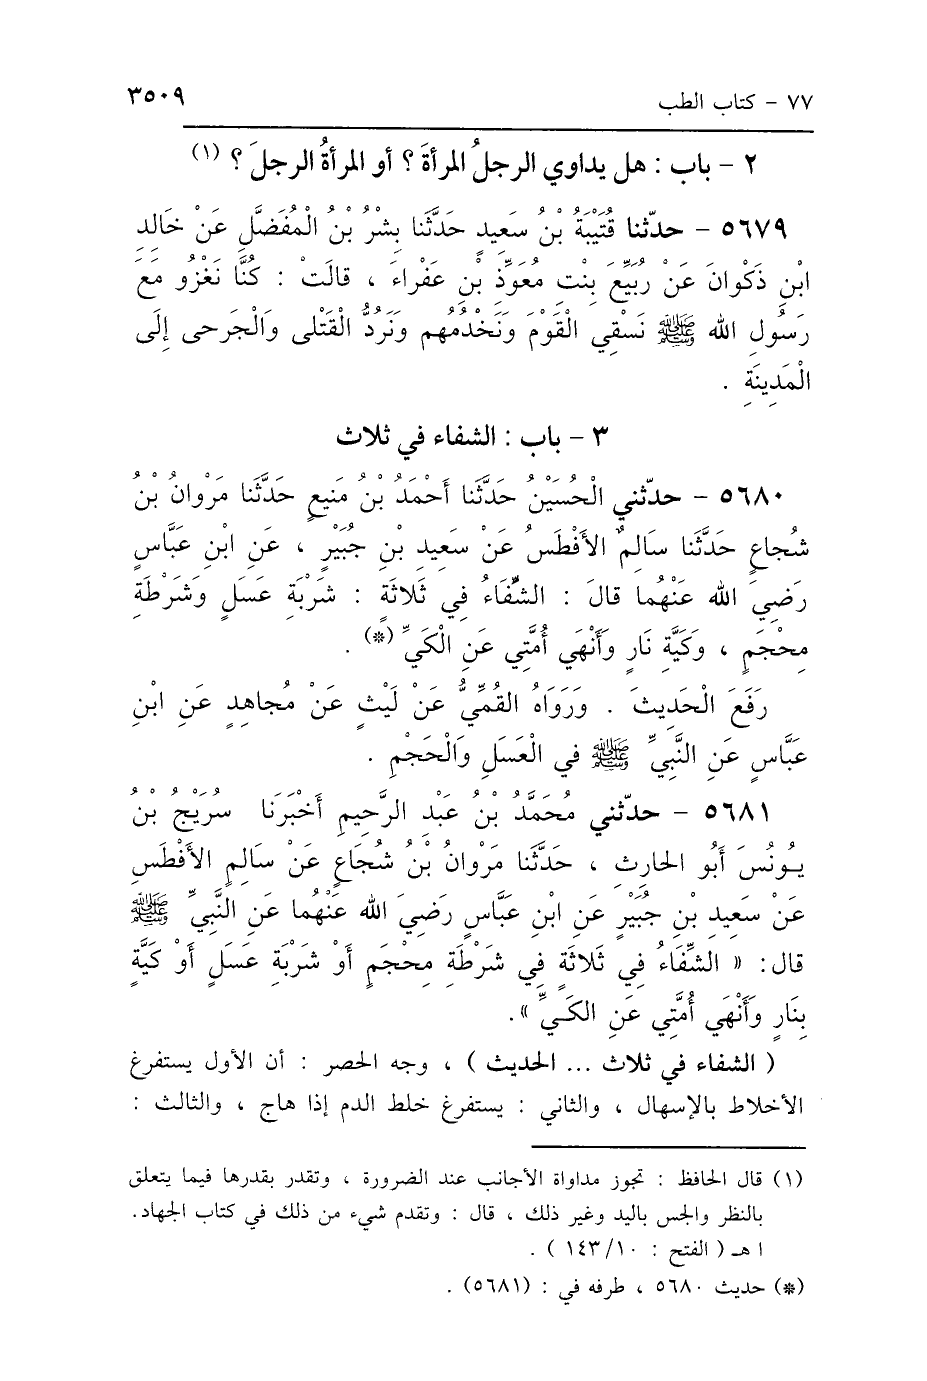 ٧٧ - كتاب الطب ٣٥٠٩
٢ - باب : هل يداوي الرجلُ المرأةَ ؟ أو المرأةُ الرجلَ ؟ (١)
٥٦٧٩ - حدّثنا قُتَيْبَةُ بْنُ سَعِيدٍ حَدَّثَنَا بِشْرُ بْنُ الْمُفَضَّلِ عَنْ خَالِدِ
ابْنِ ذَكْوانَ عَنْ رُبَيِّعَ بِنْتِ مُعَوِّذِ بْنِ عَفْراءَ ، قالَتْ : كُنَّا نَغْزو مَعَ
رَسُولِ الله ﷺ نَسْقِي الْقَوْمَ وَنَخْدُمُهم وَنَرُدُّ الْقَتْلى وَالْجَرحى إلَى
الْمَدِينَةِ .
٣ - باب : الشفاء في ثلاث
٥٦٨٠ - حدّثني الْحُسَيْنُ حَدَّثَنا أَحْمَدُ بْنُ مَنِيعٍ حَدَّثَنا مَرْوانُ بْنُ
شُجاعٍ حَدَّثَنا سَالِمٌ الأَفْطَسُ عَنْ سَعِيدِ بْنِ جُبَيْرٍ ، عَنِ ابْنِ عَبَّاسٍ
رَضِيَ الله عَنْهُما قالَ : الشِّفَاءُ فِي ثَلَاثَةٍ : شَرْبَةِ عَسَلٍ وَشَرْطَةِ
مِحْجَمٍ ، وَكَيَّةِ نَارٍ وَأَنْهَي أُمَّتِي عَنِ الْكَيِّ (*) .
رَفَعَ الْحَدِيثَ . وَرَوَاهُ القُمِّيُّ عَنْ لَيْثٍ عَنْ مُجاهِدٍ عَنِ ابْنِ
عَبَّاسٍ عَنِ النَّبِيِّ ﷺ في الْعَسَلِ وَالْحَجْمِ .
٥٦٨١ - حدّثني مُحَمَّدُ بْنُ عَبْدِ الرَّحِيمِ أَخْبَرَنَا سُرَيْجُ بْنُ
يُونُسَ أَبُو الحارِثِ ، حَدَّثَنا مَرْوانُ بْنُ شُجَاعٍ عَنْ سَالِمٍ الأَفْطَسِ
عَنْ سَعِيدِ بْنِ جُبَيْرٍ عَنِ ابْنِ عَبَّاسٍ رَضِيَ الله عَنْهُما عَنِ النَّبِيِّ ﷺ
قال: « الشِّفَاءُ فِي ثَلاثَةٍ فِي شَرْطَةِ مِحْجَمٍ أَوْ شَرْبَةِ عَسَلٍ أَوْ كَيَّةٍ
بِنَارٍ وَأَنْهَي أُمَّتِي عَنِ الكَيِّ ».
( الشفاء في ثلاث ... الحديث ) ، وجه الحصر : أن الأول يستفرغ
الأخلاط بالإسهال ، والثاني : يستفرغ خلط الدم إذا هاج ، والثالث :
(١) قال الحافظ : تجوز مداواة الأجانب عند الضرورة ، وتقدر بقدرها فيما يتعلق
بالنظر والجس باليد وغير ذلك ، قال : وتقدم شيء من ذلك في كتاب الجهاد.
ا هـ ( الفتح : ١٠/ ١٤٣ ) .
(*) حديث ٥٦٨٠ ، طرفه في : (٥٦٨١) .